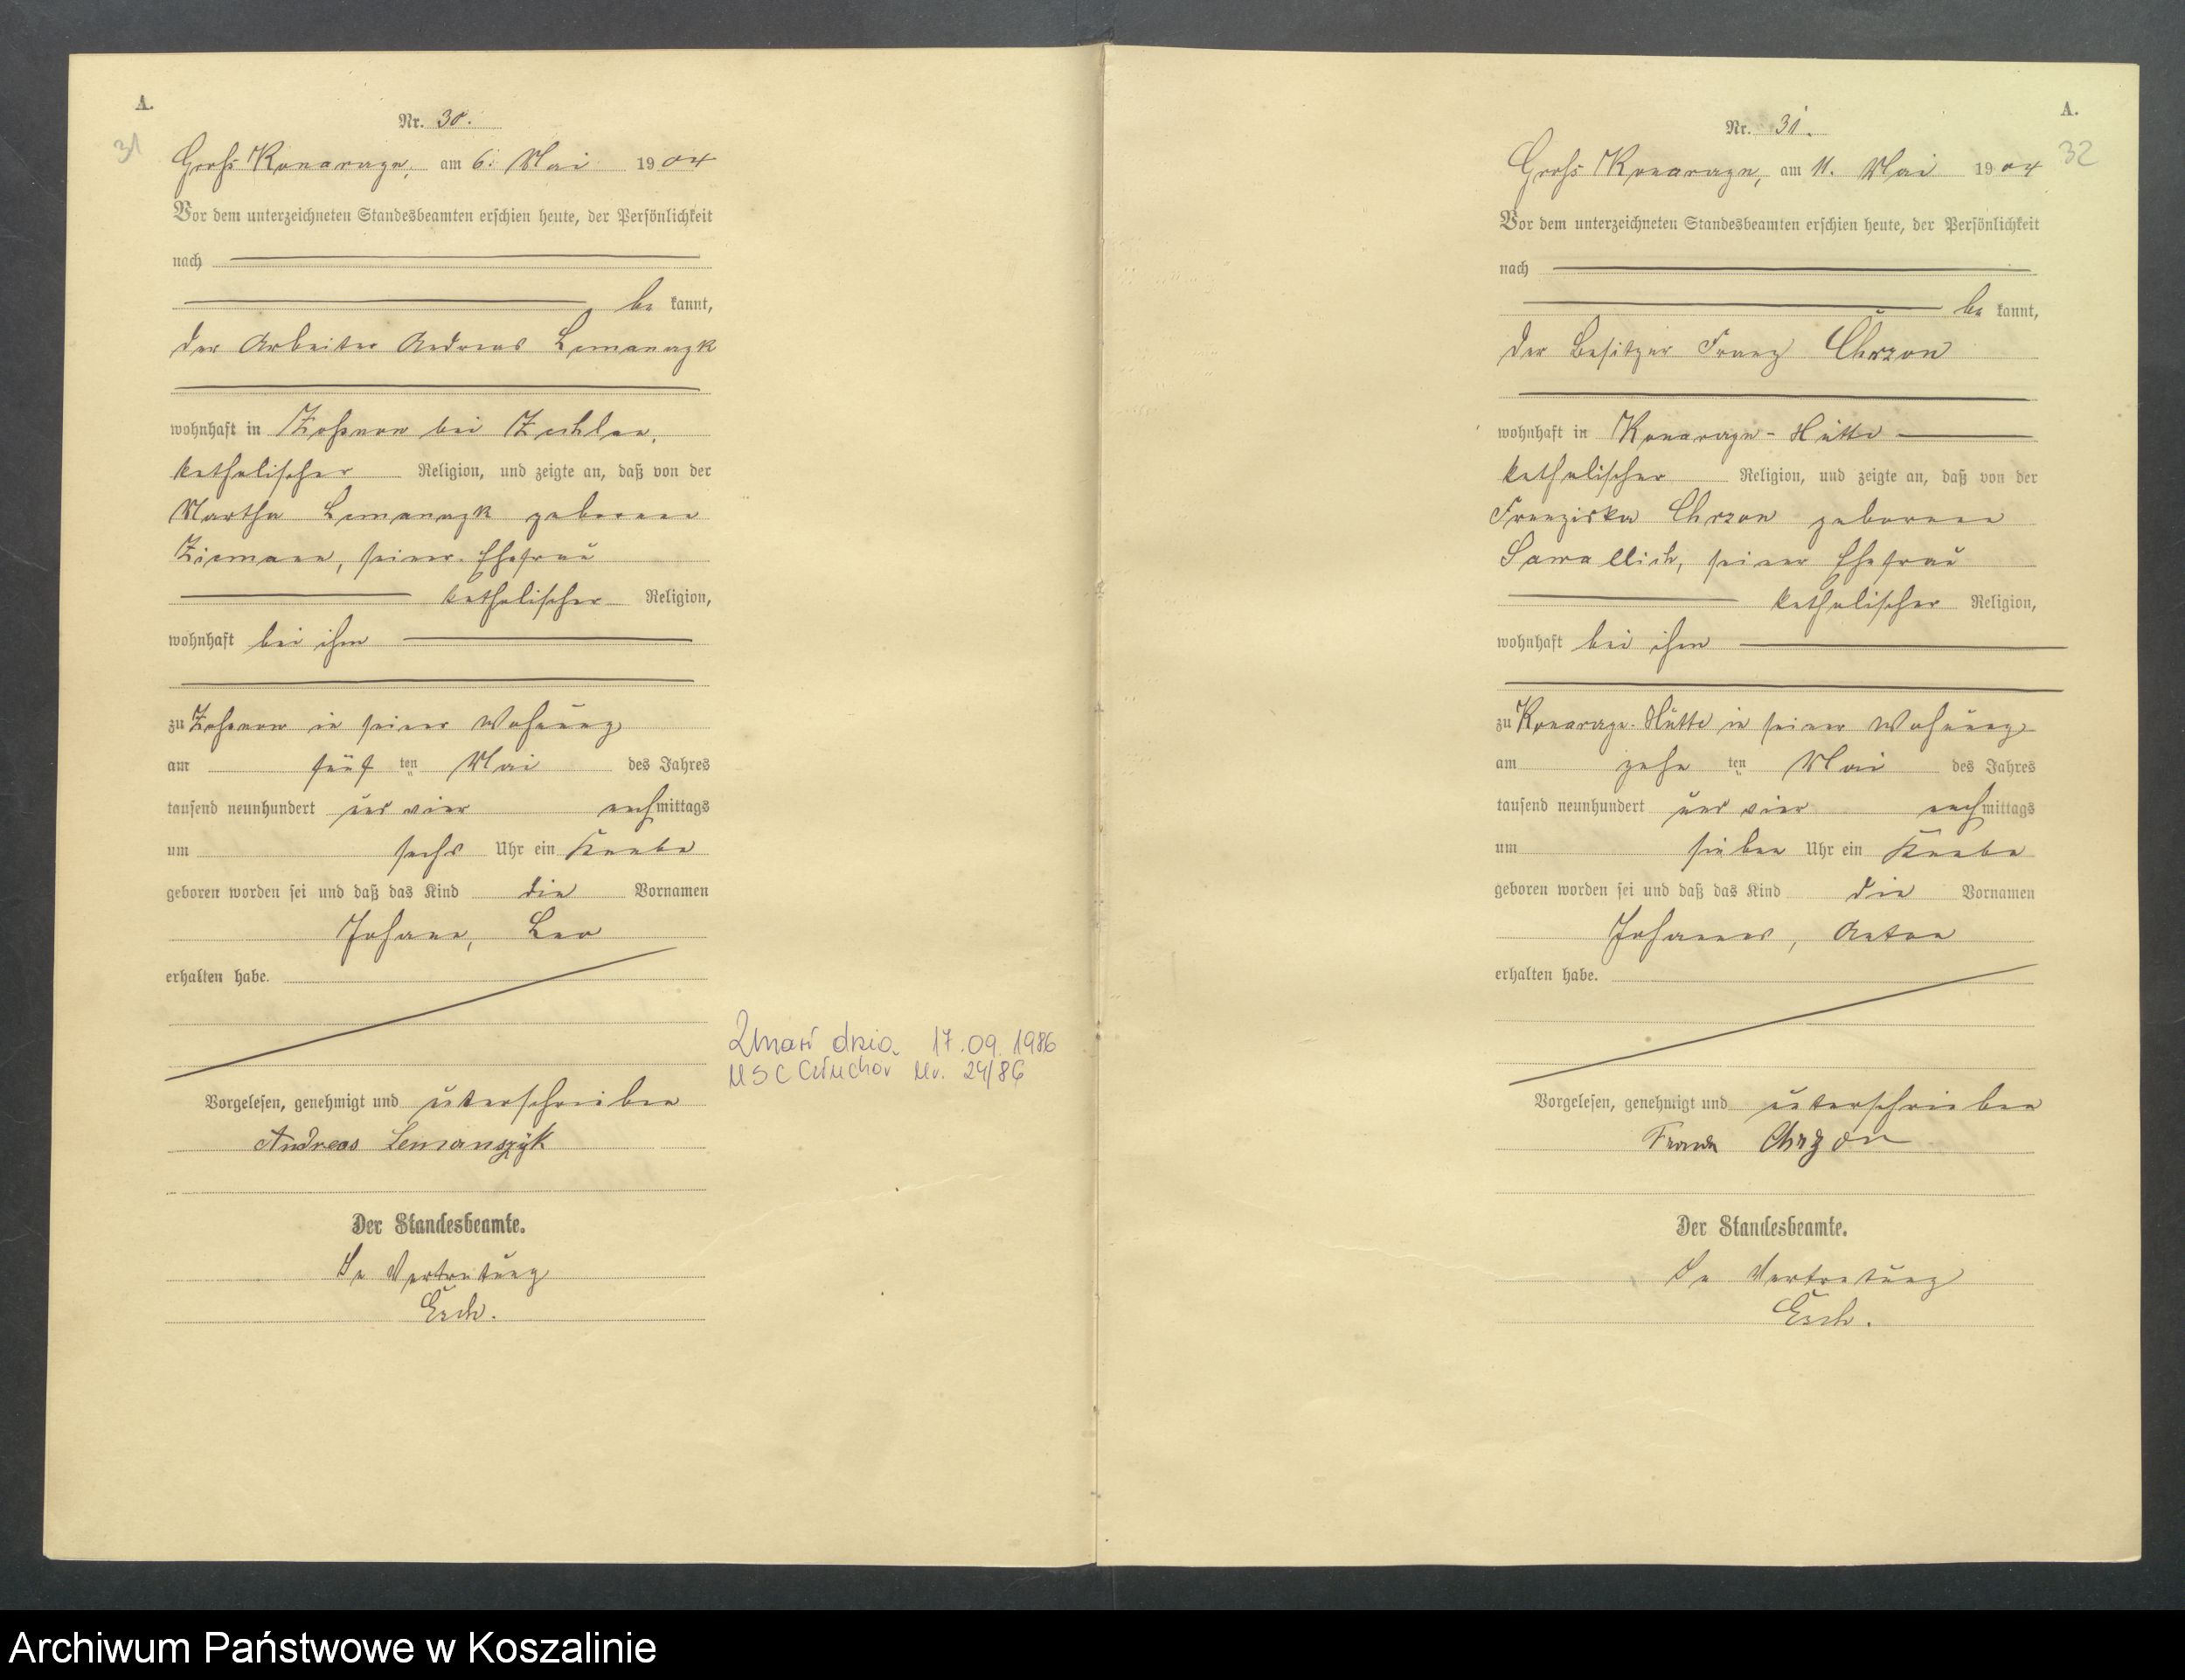 A.
31
Nr. 30.
Groß Konarzyn, am 6. Mai 1904
Vor dem unterzeichneten Standesbeamten erschien heute, der Persönlichkeit
nach
be kannt,
der Arbeiter Andreas Lemanczk
wohnhaft in bei Zechlau,
katholischer Religion, und zeigte an, daß von der
Martha Lemanczk geborenen
Ziemann, seiner Ehefrau
katholischer Religion,
wohnhaft bei ihm
zu in seiner Wohnung
am fünf ten Mai des Jahres
tausend neunhundert und vier nachmittags
um sechs Uhr ein Knabe
geboren worden sei und daß das Kind die Vornamen
Johann, Leo
erhalten habe.
Zmarł dnia 17.09.1986
USC Człuchów Nr. 24/86
Vorgelesen, genehmigt und unterschrieben
Andreas Lemanszÿk
Der Standesbeamte.
In Vertretung
Esch.
A.
32
Nr. 31.
Groß Konarzyn, am 11. Mai 1904
Vor dem unterzeichneten Standesbeamten erschien heute, der Persönlichkeit
nach
be kannt,
der Besitzer Franz Chrzon
wohnhaft in Konarzyn-Hütte
katholischer Religion, und zeigte an, daß von der
Franziska Chrzon geborenen
Sawallich, seiner Ehefrau
katholischer Religion,
wohnhaft bei ihm
zu Konarzyn-Hütte in seiner Wohnung
am zehn ten Mai des Jahres
tausend neunhundert und vier nachmittags
um sieben Uhr ein Knabe
geboren worden sei und daß das Kind die Vornamen
Johannes, Anton
erhalten habe.
Vorgelesen, genehmigt und unterschrieben
Chrzon
Der Standesbeamte.
In Vertretung
Esch.
Archiwum Państwowe w Koszalinie